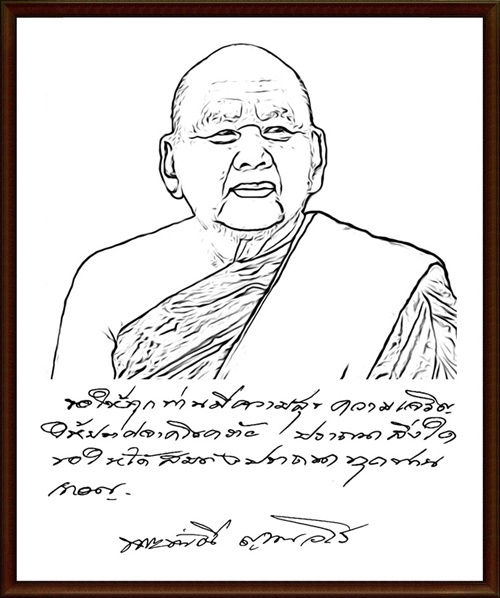 ขอให้ทุกท่านมีความสุข ความเจริญ
ให้ปราศจากโรคภัย ปรารถนาสิ่งใด
ขอให้ได้สมดังปรารถนาทุกท่าน
เทอญ.